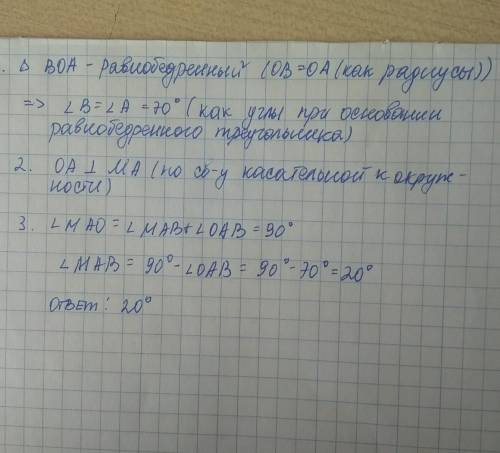 . △ BOA - равнобедренный (OB=OA (как радиусы))
=> ∠B=∠A=70° (как углы при основании
равнобедренного треугольника)
2. OA ⊥ MA (по св-у касательной к окруж-
ности)
3. ∠MAO = ∠MAB+∠OAB = 90°
∠MAB = 90°-∠OAB = 90°-70°=20°
Ответ: 20°